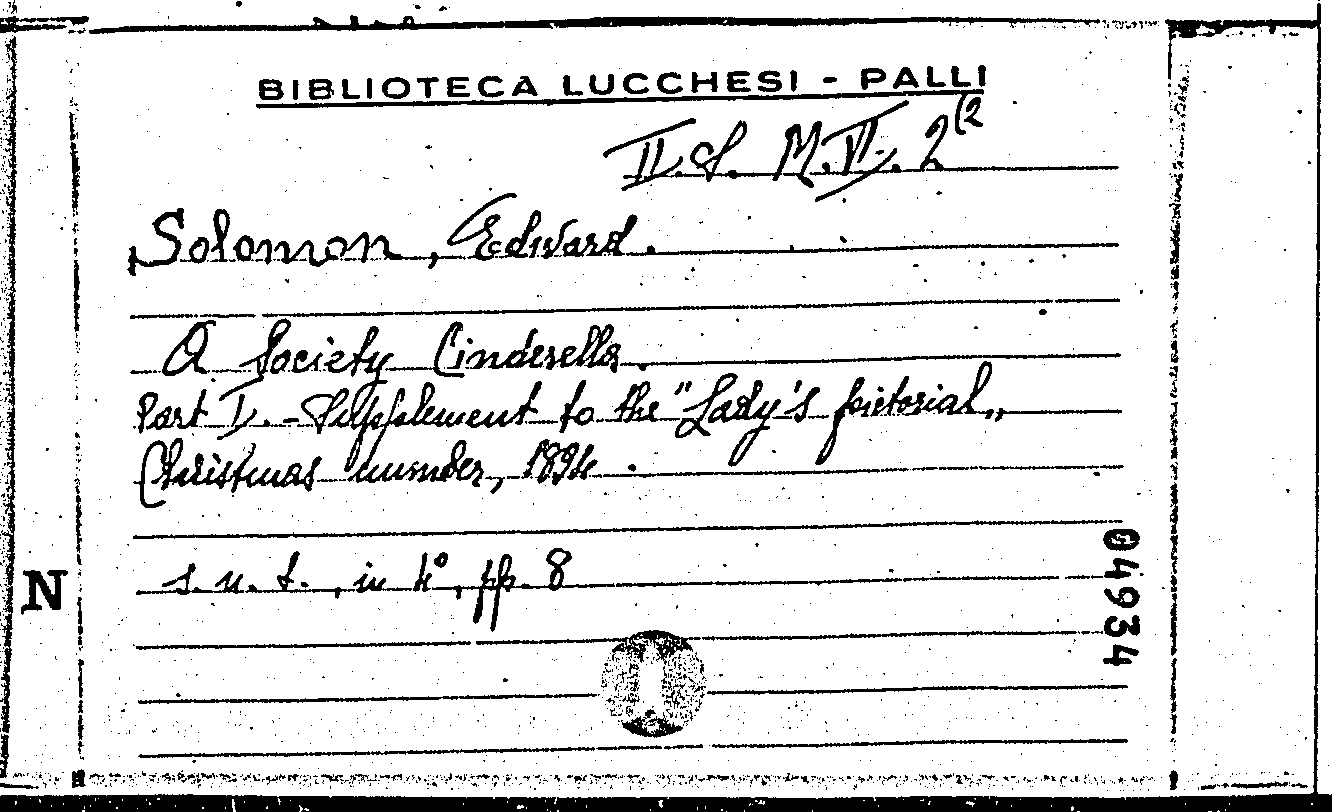 BIBLIOTECA LUCCHESI - PALLI
II.S. M.VI. 2(2
Solomon, Edward.
A Society Cinderella.
Part I. - Supplement to the "Lady's pictorial„
Christmas number, 1894.
s. n. t., in 4°, pp. 8
N
04934